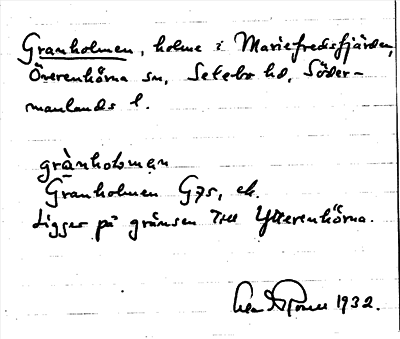 Granholmen, holme i Mariefredsfjärden,
Överenhörna sn, Selebo hd, Söder-
manlands l.
grànholmən
Granholmen G75, ek.
Ligger på gränsen till Ytterenhörna.
1932.